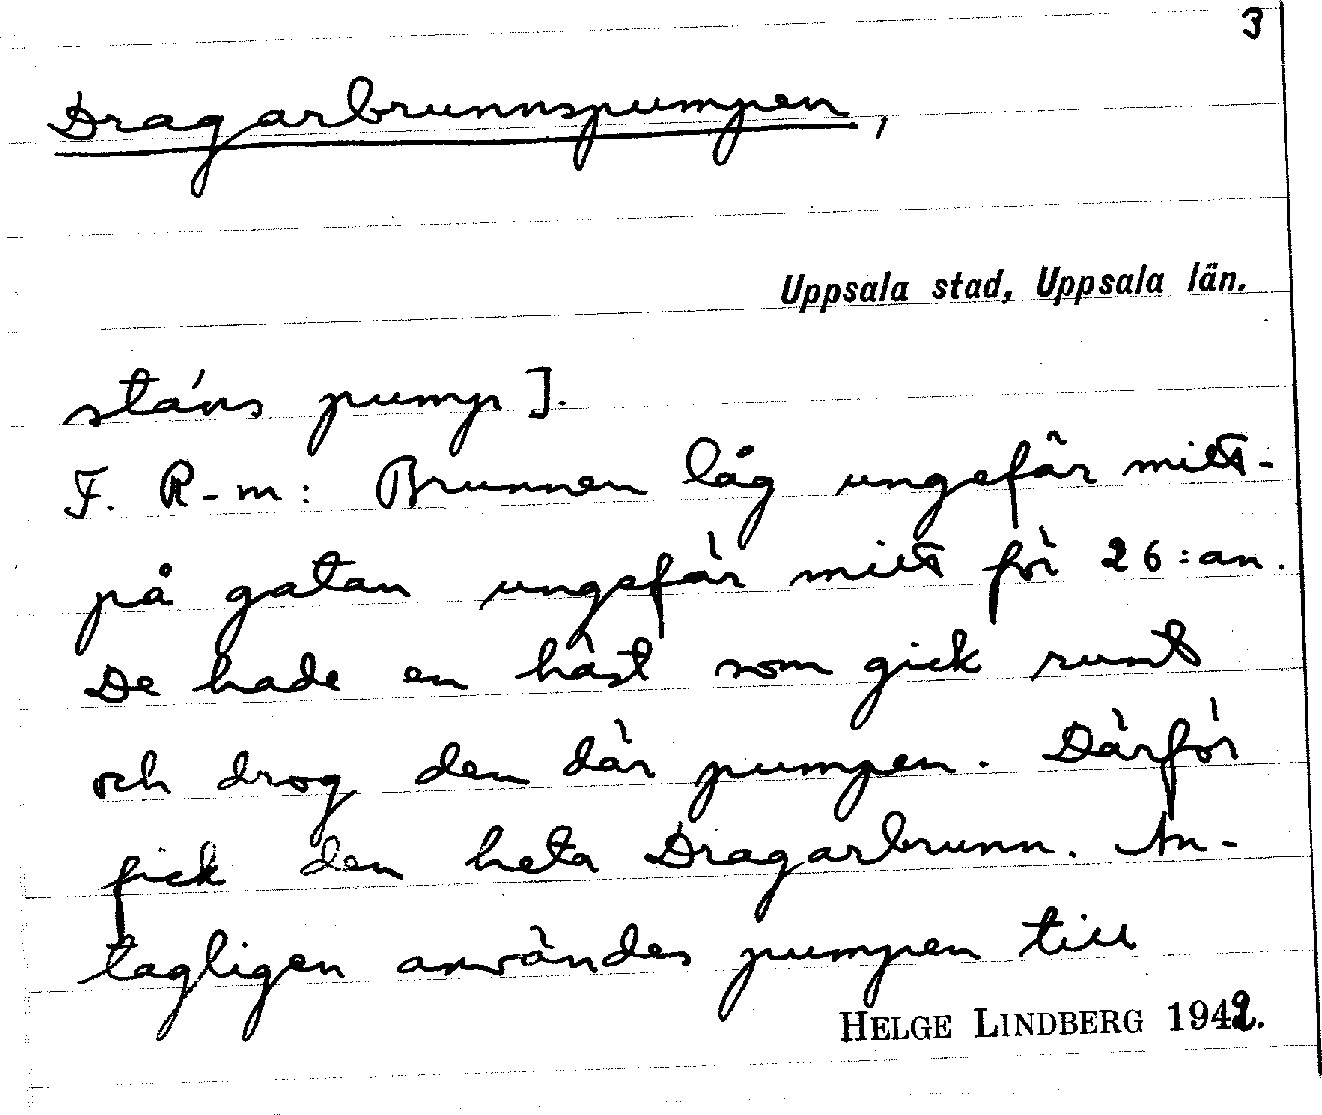 3
Dragarbrunnspumpen,
Uppsala stad, Uppsala län.
stáns pump].
F. R-m: Brunnen låg ungefär mitt-
på gatan ungefär mitt för 26:an.
De hade en häst som gick runt
och drog den där pumpen. Därför
fick den heta Dragarbrunn. An-
tagligen användes pumpen till
HELGE LINDBERG 1942.